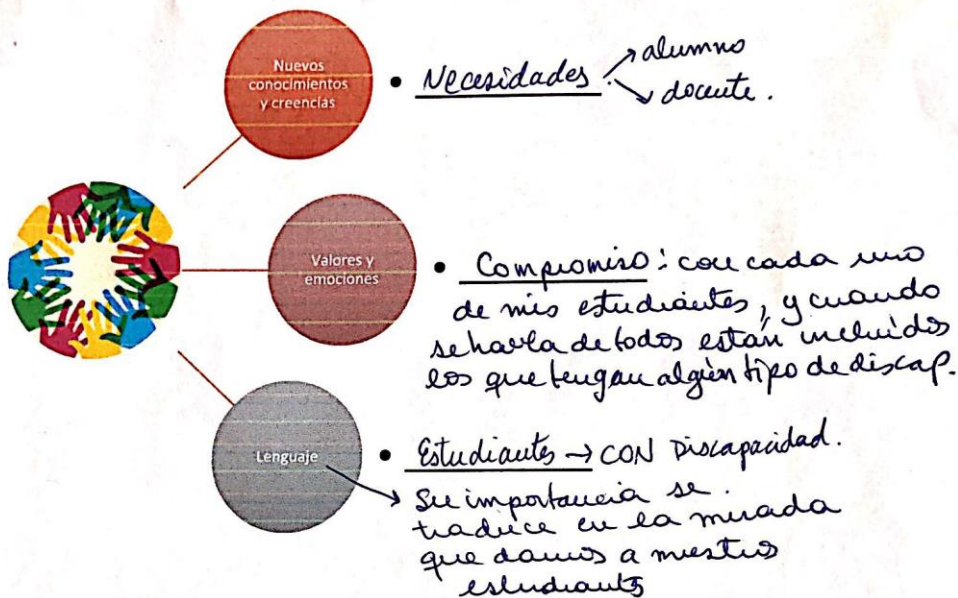 Nuevos
conocimientos
y creencias
• Necesidades. → alumno
→ docente.
Valores y
emociones
• Compromiso: con cada uno
de mis estudiantes, y cuando
se habla de todos están incluídos
los que tengan algún tipo de discap.
Lenguaje
• Estudiantes → CON Discapacidad.
→ Su importancia se
traduce en la mirada
que damos a nuestros
estudiantes